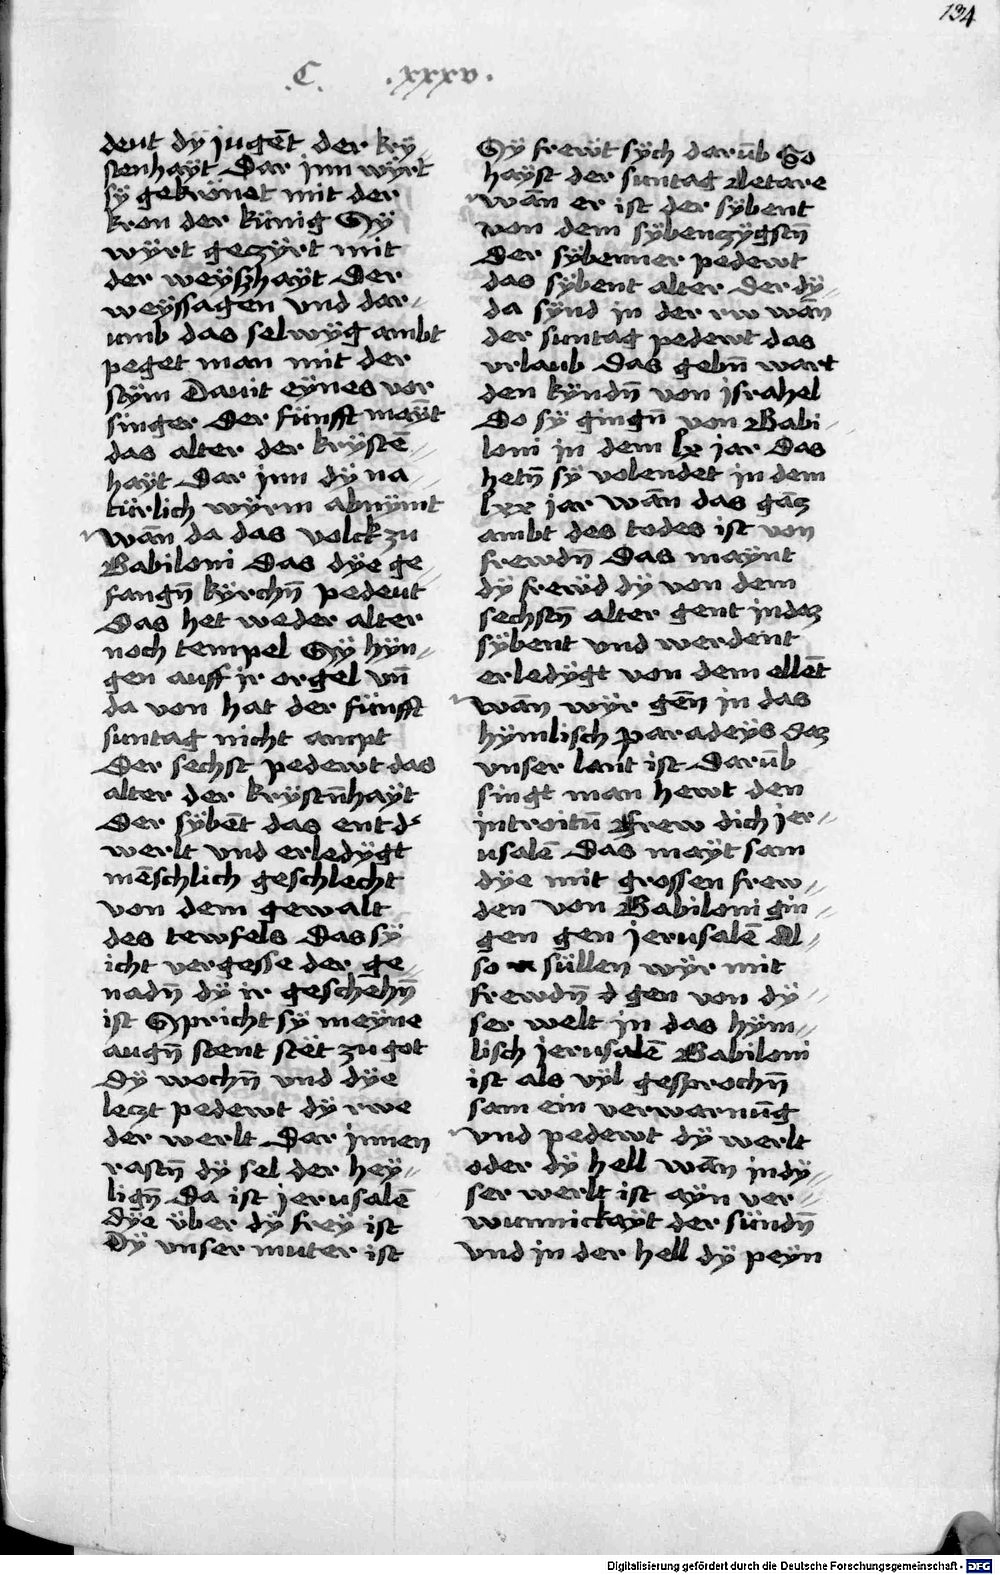 134
.C. .xxxv.
deut dÿ jugēt der krÿ-
stenhaÿt Dar inn wÿrt
sÿ gekrönet mit der
kron der künig Sÿ
wÿrt gezÿrt mit
der weÿszhaÿt Der
weÿssagen vnd dar-
umb das selwÿg ambt
peget man mit der
stÿm Dauit eÿnes vor
singer Der fünfft maÿt
das alter der krÿstē-
haÿt Dar inn dÿ na-
türlich wÿrm abnÿmt
wān da das volck zu
Babiloni Das dÿe ge-
fangn̄ kÿrchn̄ pedeut
Das het weder alter
noch tempel Sÿ hÿn-
gen auff ir orgel vn̄
da von hat der fünfft
suntag nicht ampt
Der sechst pedewt das
alter der krÿstn̄haÿt
Der sÿbēt das ent d'
werlt vnd erledÿgt
mēschlich geschlecht
von dem gewalt
des tewfels Das sÿ
icht vergesse der ge-
nadn̄ dÿ ir geschehn̄
ist Spricht sÿ meÿne
augn̄ stent stët zu got
Dÿ wochn̄ vnd dÿe
leczt pedewt dÿ rwe
der werlt Dar innen
rastn̄ dÿ sel der heÿ-
lign̄ Da ist jerusalē
dÿe über dÿ freÿ ist
Dÿ vnser muter ist
Sÿ frewt sÿch darūb So
haÿst der suntag Letare
wān er ist der sÿbent
von dem sÿbenzÿgstn̄
Der sÿbenner pedewt
das sÿbent alter Der dÿ-
da sÿnd in der rw wān
der suntag pedewt das
vrlaub Das gebn̄ wart
den kÿndn̄ von israhel
Do sÿ gingn̄ von Babi-
loni in dem lx jar Das
hetn̄ sÿ volendet in dem
lxx jar wān das gācz
ambt des todes ist von
frewdn̄ Das maÿnt
dÿ frewd dÿ von dem
sechstn̄ alter gent in daz
sÿbent vnd werdent
erledÿgt von dem ellēt
wān wÿr gēn in das
hÿmlisch paradeÿs daz
vnser lant ist Darūb
singt man hewt den
introitū Frew dich jer-
usalē Das maÿt sam
dÿe mit grossen frew-
den von Babiloni gin-
gen gen jerusalē Al-
so süllen wÿr mit
frewdn̄ d gen von dÿ-
ser welt in das hÿm-
lisch jerusalē Babiloni
ist als vÿl gesprochn̄
sam ein verwarnūg
vnd pedewt dÿ werlt
oder dÿ hell wān in dÿ-
ser werlt ist aÿn ver-
wunnickaÿt der sündn̄
vnd in der hell dÿ peÿn
Digitalisierung gefördert durch die Deutsche Forschungsgemeinschaft - DFG